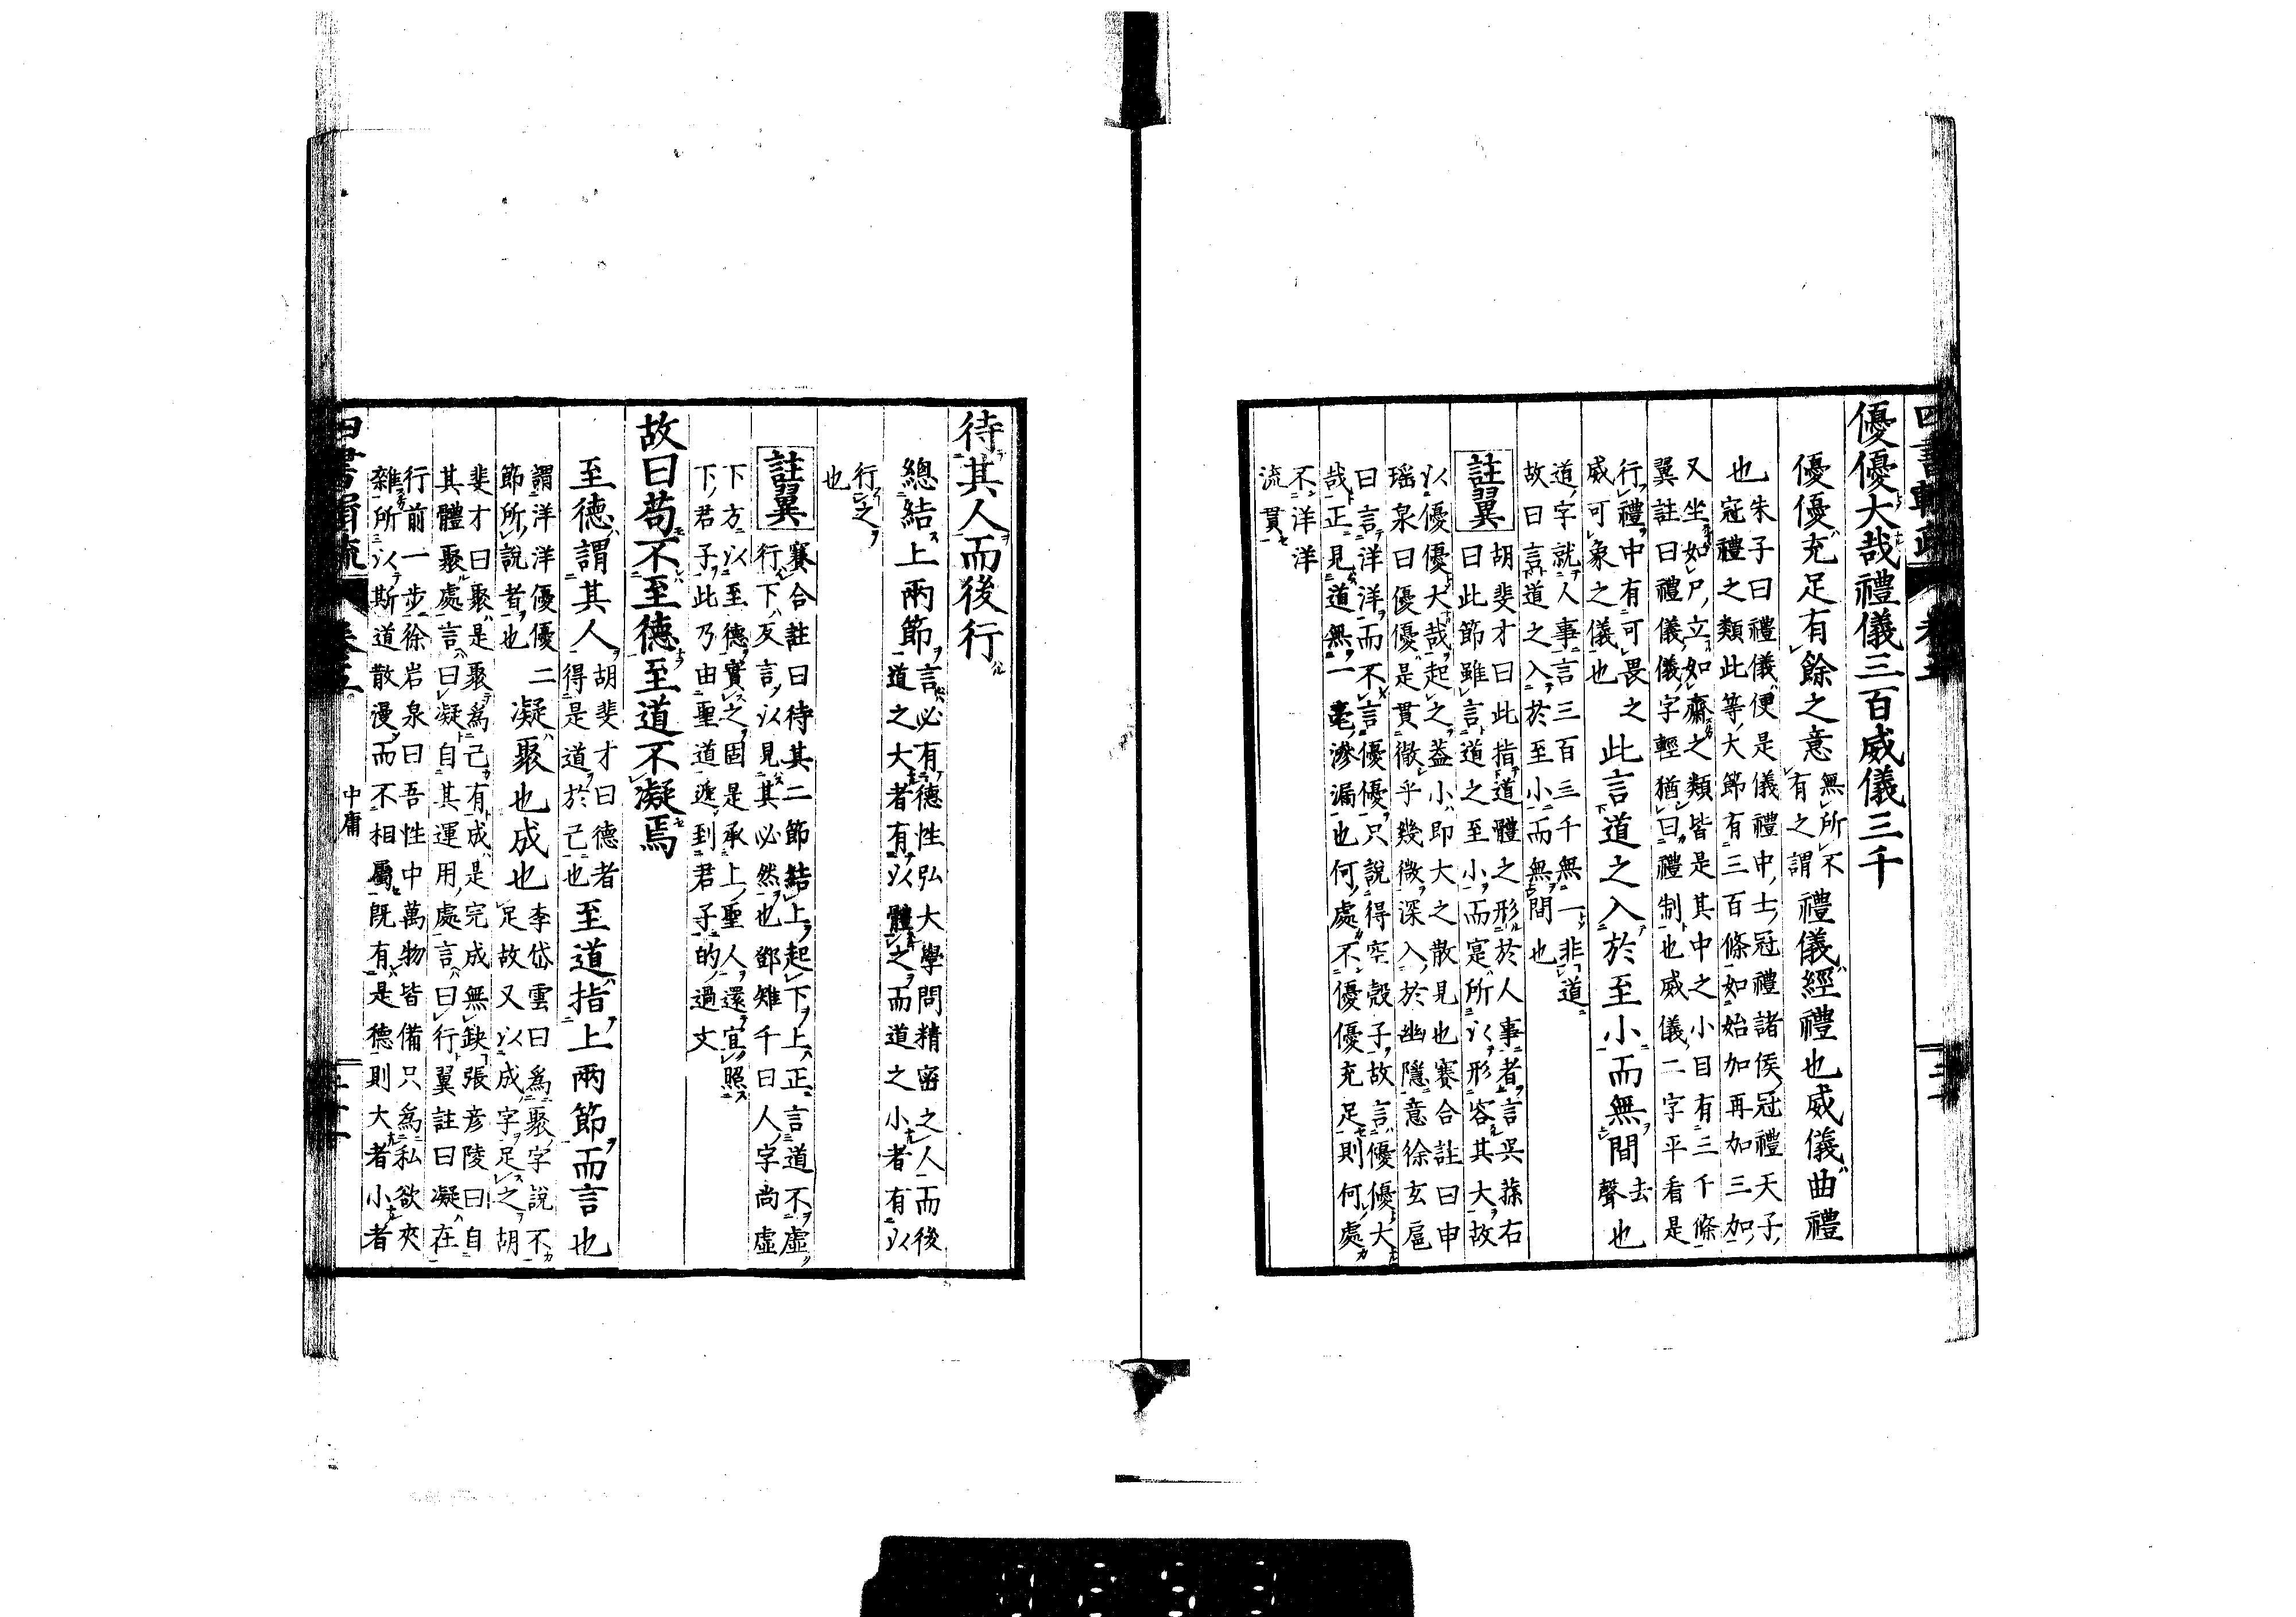 優優大哉禮儀三百威儀三千
優優充足有餘之意無所不
有之謂禮儀經禮也威儀曲禮
也朱子曰禮儀便是儀禮中士冠禮諸侯冠禮天子
冠禮之類此等大節有三百條如始加再加三加
又坐如尸立如齋之類皆是其中之小目有三千條
翼註曰禮儀儀字輕猶曰禮制也威儀二字平看是
行禮中有可畏之
威可象之儀也此言道之入於至小而無間去
聲也
道字就人事言三百三千無一非道
故曰言道之入於至小而無間也
註翼
胡斐才曰此指道體之形於人事者言吳蓀右
曰此節雖言道之至小而寔所以形容其大故
以優優大哉起之葢小即大之散見也賽合註曰申
瑶泉曰優優是貫徹乎幾微深入於幽隱意徐玄扈
曰言洋洋而不言優優只說得空殼子故言優優大
哉正見道無一毫滲漏也何處不優優充足則何處
不洋洋
流貫
待其人而後行
總結上兩節言必有德性弘大學問精密之人而後
道之大者有以體之而道之小者有以
行之
也
註翼
賽合註曰待其二節結上起下上正言道不虛
行下反言以見其必然也鄧雉千曰人字尚虛
下方以至德實之固是承上聖人還宜照
下君子此乃由聖道遞到君子的過文
故曰苟不至德至道不凝焉
至德謂其人胡斐才曰德者
得是道於己也至道指上兩節而言也
謂洋洋優優二
節所說者也凝聚也成也李岱雲曰爲聚字說不
足故又以成字足之胡
斐才曰聚是聚爲己有成是完成無缺張彦陵曰自
其體聚處言曰凝自其運用處言曰行翼註曰凝在
行前一步徐岩泉曰吾性中萬物皆備只爲私欲夾
雜所以斯道散漫而不相屬既有是德則大者小者
中庸